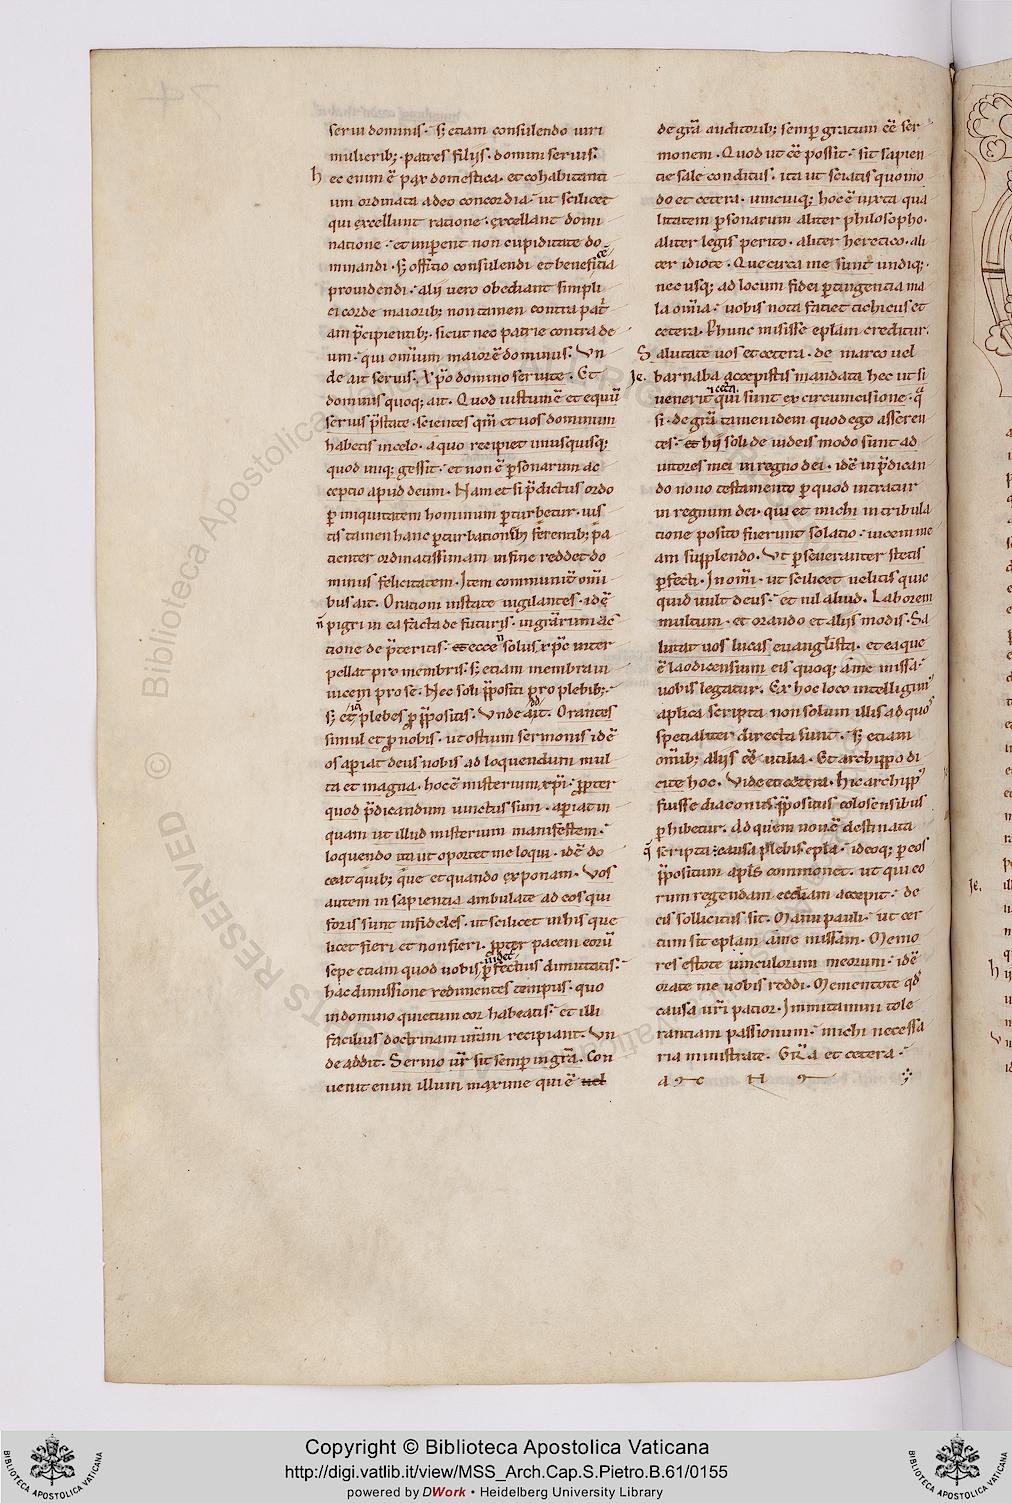 serui dominis. s; etiam consulendo uiri
mulierib; . patres filijs. domini seruis.
h ec enim ē pax domestica. et cohabitanti
um ordinata adeo concordia. ut scilicet
qui excellunt ratione. excellant domi
natione. et imperent non cupiditate do
minandi. s; offitio consulendi et beneficia
prouidendi. alij uero obediant simpli
ci corde maiorib; non tamen contra pat
am p̄cipientib;. sicut nec patrie contra de
um. qui omīum maiorē dominus. Vn
de ait seruis. Xp̄o domino seruite. Et
dominis quoq; ait. Quod iustum ē et equū
seruis p̄state. scientes qm̄ et uos dominum
habetis in celo. a quo recipiet unusquisq;
quod iniq; gessit. et non ē personarum ac
ceptio apud deum. Nam et si p̄dictus ordo
per iniquitatem hominum perturbetur. ius
tis tamen hanc perturbationem ferentib; pa
tienter ordinatissimam in fine reddet do
minus felicitatem. Item communit̄ omī
bus ait. Orationi instate uigilantes. idē
n̄ pigri in ea facta de futuris. in gr̄arum ac
tione de p̄teritis. et ecce n̄ solus xp̄c inter
pellat pro membris. s; etiam membra in
uicem pro se. Nec soli p̄positi pro plebib;.
s; et plebes pro p̄positis. Vnde ait. Orantes
simul et pro nobis. ut ostium sermonis idē
os aperiat deus nobis ad loquendum mul
ta et magna. hoc ē misterium xp̄i. propter
quod p̄dicandum uinctus sum. aperiat in
quam ut illud misterium manifestem.
loquendo ita ut oportet me loqui. idē do
ceat quib; que et quando exponam. Vos
autem in sapientia ambulate ad eos qui
foris sunt infideles. ut scilicet in his que
licet fieri et non fieri. propter pacem eorū
sepe etiam quod uobis uidet perfectius dimittatis.
hac dimissione redimentes tempus. quo
in domino quietum cor habeatis. et illi
facilius doctrinam ur̄am recipiant. Vn
de addit. Sermo ur̄ sit semper in gr̄a. Con
uenit enim illum maxime qui ē uel
de gr̄a auditorib; semper gratum eē ser
monem. Quod ut eē possit. sit sapien
tie sale conditus. ita ut sciatis quomo
do et cetera. unicuiq; hoc ē iuxta qua
litatem personarum aliter philosopho.
aliter legis perito. aliter heretico. ali
ter idiote. Que circa me sunt undiq;.
nec usq; ad locum fidei pertingentia ma
la om̄ia. uobis nota faciet tichicus et
cetera. Per hunc misisse ep̄lam creditur.
S alutate uos et cetera. de marco uel
Je. barnaba accepistis mandata hec ut si
uenerit et cetera. qui sunt ex circumcisione. q̄
si. de gr̄a tamen idem quod ego asseren
tes. et hij soli de iudeis modo sunt ad
iutores mei in regno dei. idē in p̄dican
do nouo testamento per quod intratur
in regnum dei. qui et michi in tribula
tione posito fuerunt solatio. uicem me
am supplendo. Vt perseueranter stetis
perfecti. In om̄i. ut scilicet uelitis quic
quid uult deus. et nil aliud. Laborem
multum. et orando et alijs modis. Sa
lutat uos lucas euanglista. et ea que
ē laodicensium eis quoq; a me missa.
uobis legatur. Ex hoc loco intelligim'
aplica scripta non solum illis ad quos
specialiter directa sunt. s; etiam
omīb; alijs eē utilia. Et archippo di
cite hoc. Vide et cetera. Hic archipp'
fuisse diaconus p̄positus colosensibus
perhibetur. Ad quem non ē destinata
q̄ scripta causa plebis ep̄la. ideoq; per eos
p̄positum apl̄s commonet. ut qui eo
rum regendam eccliam accepit. de
eis sollicitus sit. Manu pauli. ut cer
tum sit eplam a me missam. Memo
res estote uinculorum meorum. idē
orate me uobis reddi. Mementote qd̄
causa ur̄i patior. Immitamini tole
rantiam passionum. michi necessa
ria ministrate. Gr̄a et cetera.
a m e N
Copyright © Biblioteca Apostolica Vaticana
http://digi.vatlib.it/view/MSS_Arch.Cap.S.Pietro.B.61/0155
powered by DWork • Heidelberg University Library
BIBLIOTECA APOSTOLICA VATICANA
BIBLIOTECA APOSTOLICA VATICANA